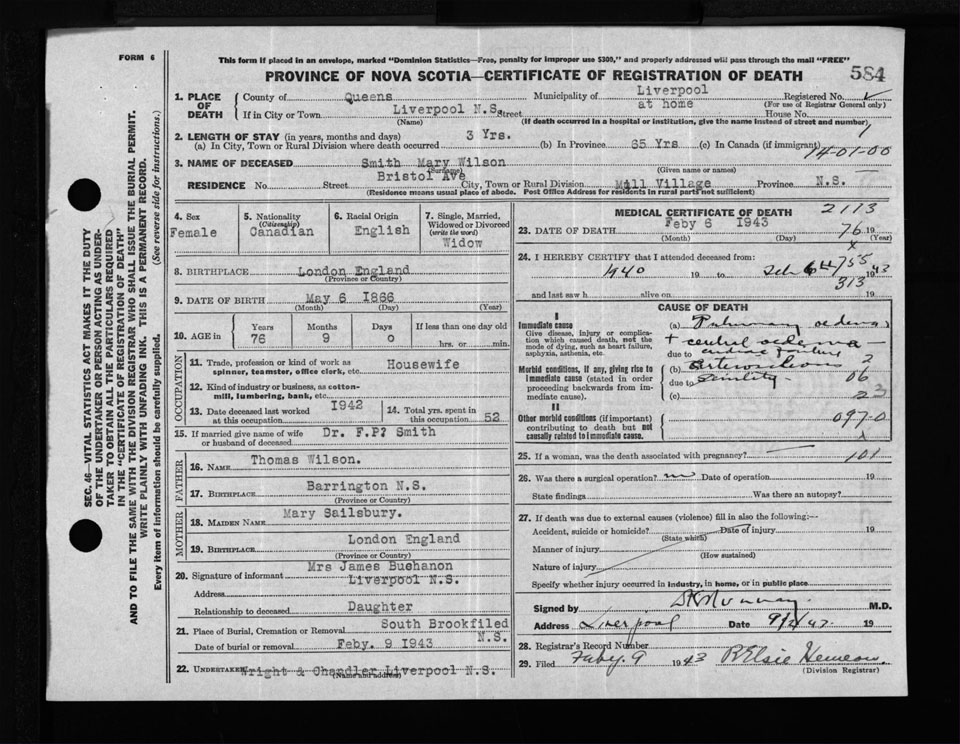 FORM 6
This form if placed in an envelope, marked "Dominion Statistics—Free, penalty for improper use $300," and properly addressed will pass through the mail "FREE"
PROVINCE OF NOVA SCOTIA—CERTIFICATE OF REGISTRATION OF DEATH
584
1. PLACE OF DEATH
County of Queens Municipality of Liverpool Registered No.
(For use of Registrar General only)
If in City or Town Liverpool N.S. Street at home House No.
(Name) (If death occurred in a hospital or institution, give the name instead of street and number)
2. LENGTH OF STAY (in years, months and days)
(a) In City, Town or Rural Division where death occurred 3 Yrs. (b) In Province 65 Yrs (c) In Canada (if immigrant)
14-01-00
3. NAME OF DECEASED Smith Mary Wilson
(Surname) (Given name or names)
RESIDENCE No. Street Bristol Ave City, Town or Rural Division Mill Village Province N.S.
(Residence means usual place of abode. Post Office Address for residents in rural parts not sufficient)
4. Sex Female
5. Nationality (Citizenship) Canadian
6. Racial Origin English
7. Single, Married, Widowed or Divorced (write the word) Widow
8. BIRTHPLACE London England
(Province or Country)
9. DATE OF BIRTH May 6 1866
(Month) (Day) (Year)
10. AGE in Years Months Days If less than one day old
76 9 0 hrs. or min.
OCCUPATION
11. Trade, profession or kind of work as spinner, teamster, office clerk, etc. Housewife
12. Kind of industry or business, as cotton-mill, lumbering, bank, etc.
13. Date deceased last worked at this occupation 1942
14. Total yrs. spent in this occupation 52
15. If married give name of wife or husband of deceased Dr. F.P? Smith
FATHER
16. NAME Thomas Wilson.
17. BIRTHPLACE Barrington N.S.
(Province or Country)
MOTHER
18. MAIDEN NAME Mary Sailsbury.
19. BIRTHPLACE London England
(Province or Country)
20. Signature of informant Mrs James Buchanon
Address Liverpool N.S.
Relationship to deceased Daughter
21. Place of Burial, Cremation or Removal South Brookfiled N.S.
Date of burial or removal Feby. 9 1943
22. UNDERTAKER Wright & Chandler Liverpool N.S.
(Name and address)
MEDICAL CERTIFICATE OF DEATH 2113
23. DATE OF DEATH Feby 6 1943
76 19
(Month) (Day) (Year)
24. I HEREBY CERTIFY that I attended deceased from:
1940 19 to 755 1943
313
and last saw h alive on 19
CAUSE OF DEATH
I
Immediate cause
Give disease, injury or complication which caused death, not the mode of dying, such as heart failure, asphyxia, asthenia, etc.
(a) Pulmonary oedema
+ cerebral oedema
due to cardiac failure
Morbid conditions, if any, giving rise to immediate cause (stated in order proceeding backwards from immediate cause).
(b)
due to Senility
(c)
2
06
23
II
Other morbid conditions (if important) contributing to death but not causally related to immediate cause.
097-0
25. If a woman, was the death associated with pregnancy? 101
26. Was there a surgical operation? no Date of operation 19
State findings Was there an autopsy?
27. If death was due to external causes (violence) fill in also the following:—
Accident, suicide or homicide? Date of injury 19
(State which)
Manner of injury
(How sustained)
Nature of injury
Specify whether injury occurred in industry, in home, or in public place
Signed by M.D.
Address Liverpool Date 9/2/43 19
28. Registrar's Record Number
29. Filed Feby. 9 1943
(Division Registrar)
SEC. 46—VITAL STATISTICS ACT MAKES IT THE DUTY
OF THE UNDERTAKER OR PERSON ACTING AS UNDER-
TAKER TO OBTAIN ALL THE PARTICULARS REQUIRED
IN THE "CERTIFICATE OF REGISTRATION OF DEATH"
AND TO FILE THE SAME WITH THE DIVISION REGISTRAR WHO SHALL ISSUE THE BURIAL PERMIT.
WRITE PLAINLY WITH UNFADING INK. THIS IS A PERMANENT RECORD.
Every item of information should be carefully supplied. (See reverse side for instructions.)